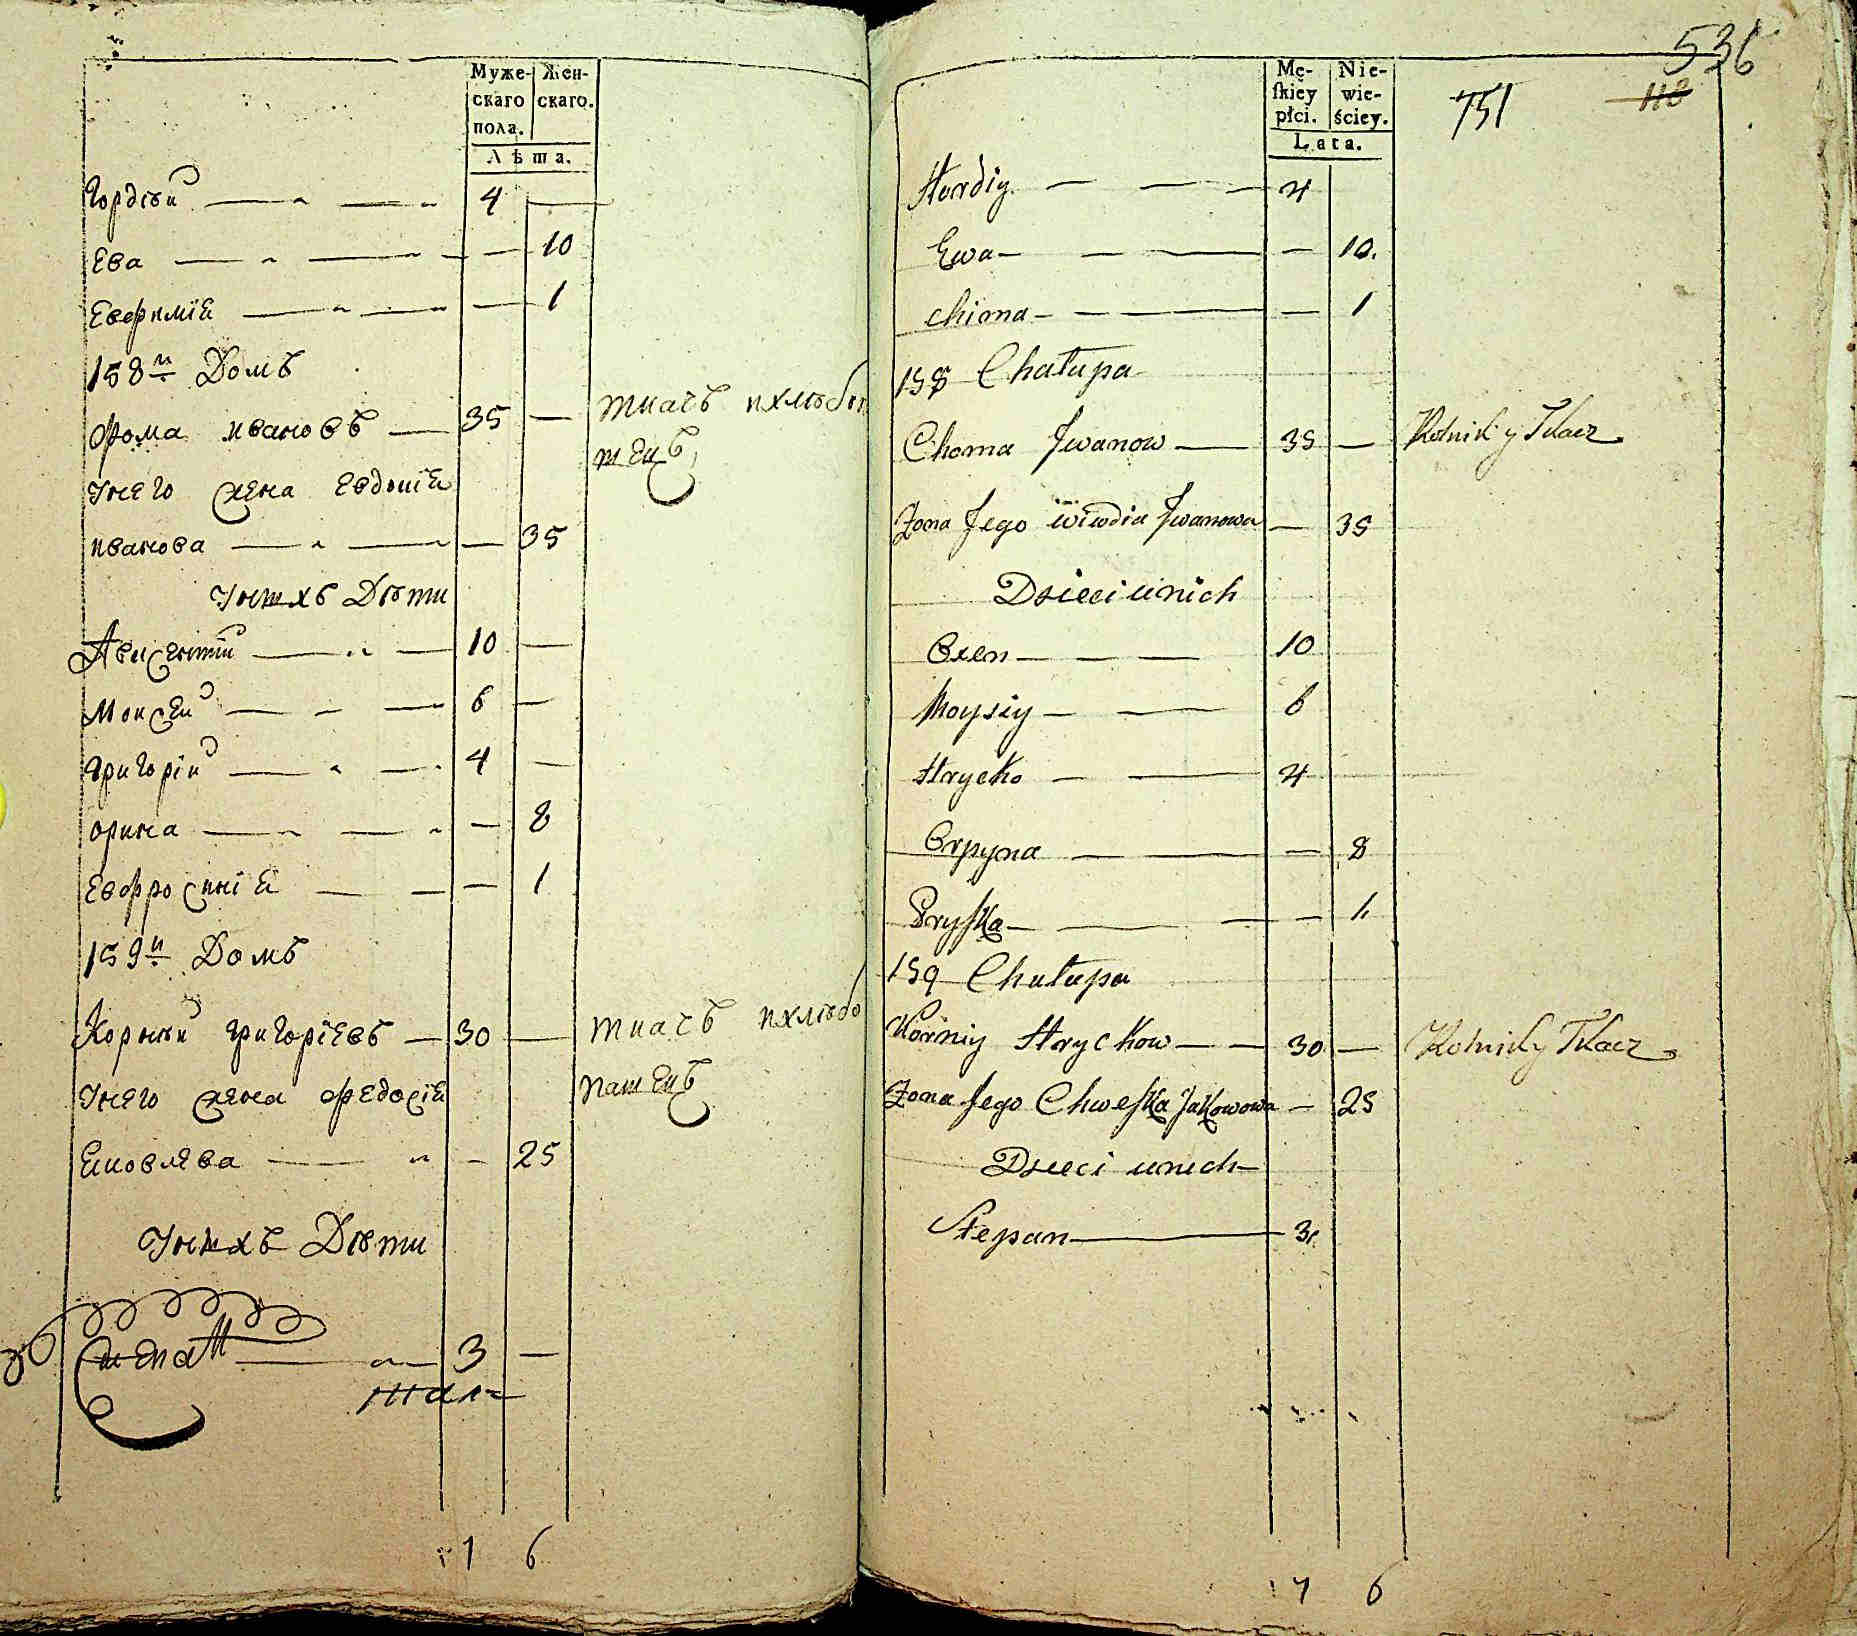 Муже-
скаго
пола.
Жен-
скаго.
Лѣта.
Гордѣй 4
Ева 10
Евфимїя 1
158й Домъ
Фома Ивановъ 35 ткачъ и хлѣбо
У него жена Евдокїя
Иванова 35
У нихъ Дѣти
Авксентїй 10
Моисей 6
Григорїй 4
Орина 8
Евфросинїя 1
159й Домъ
Корнѣй Григорїевъ 30 ткачъ и хлѣбо
У него жена Федосїя пашецъ
Яковлева 25
У нихъ Дѣти
Степанъ 3
7 6
536
118
751
Mę-
skiey
płci.
Nie-
wie-
ściey.
Lata.
Hordiy 4
Ewa 10.
Chima 1
158 Chałupa
Choma Iwanow 35 Rolnik y Tkacz
Zona Jego Wiwdia Iwanowa 35
Dzieci u nich
Oxen 10
Moysiy 6
Hrycko 4
Oryna 8
Pryska 1.
159 Chałupa
Korniy Hryckow 30 Rolnik y Tkacz
Zona Jego Chweska Jakowowa 25
Dzieci u nich
Stepan 3.
7 6